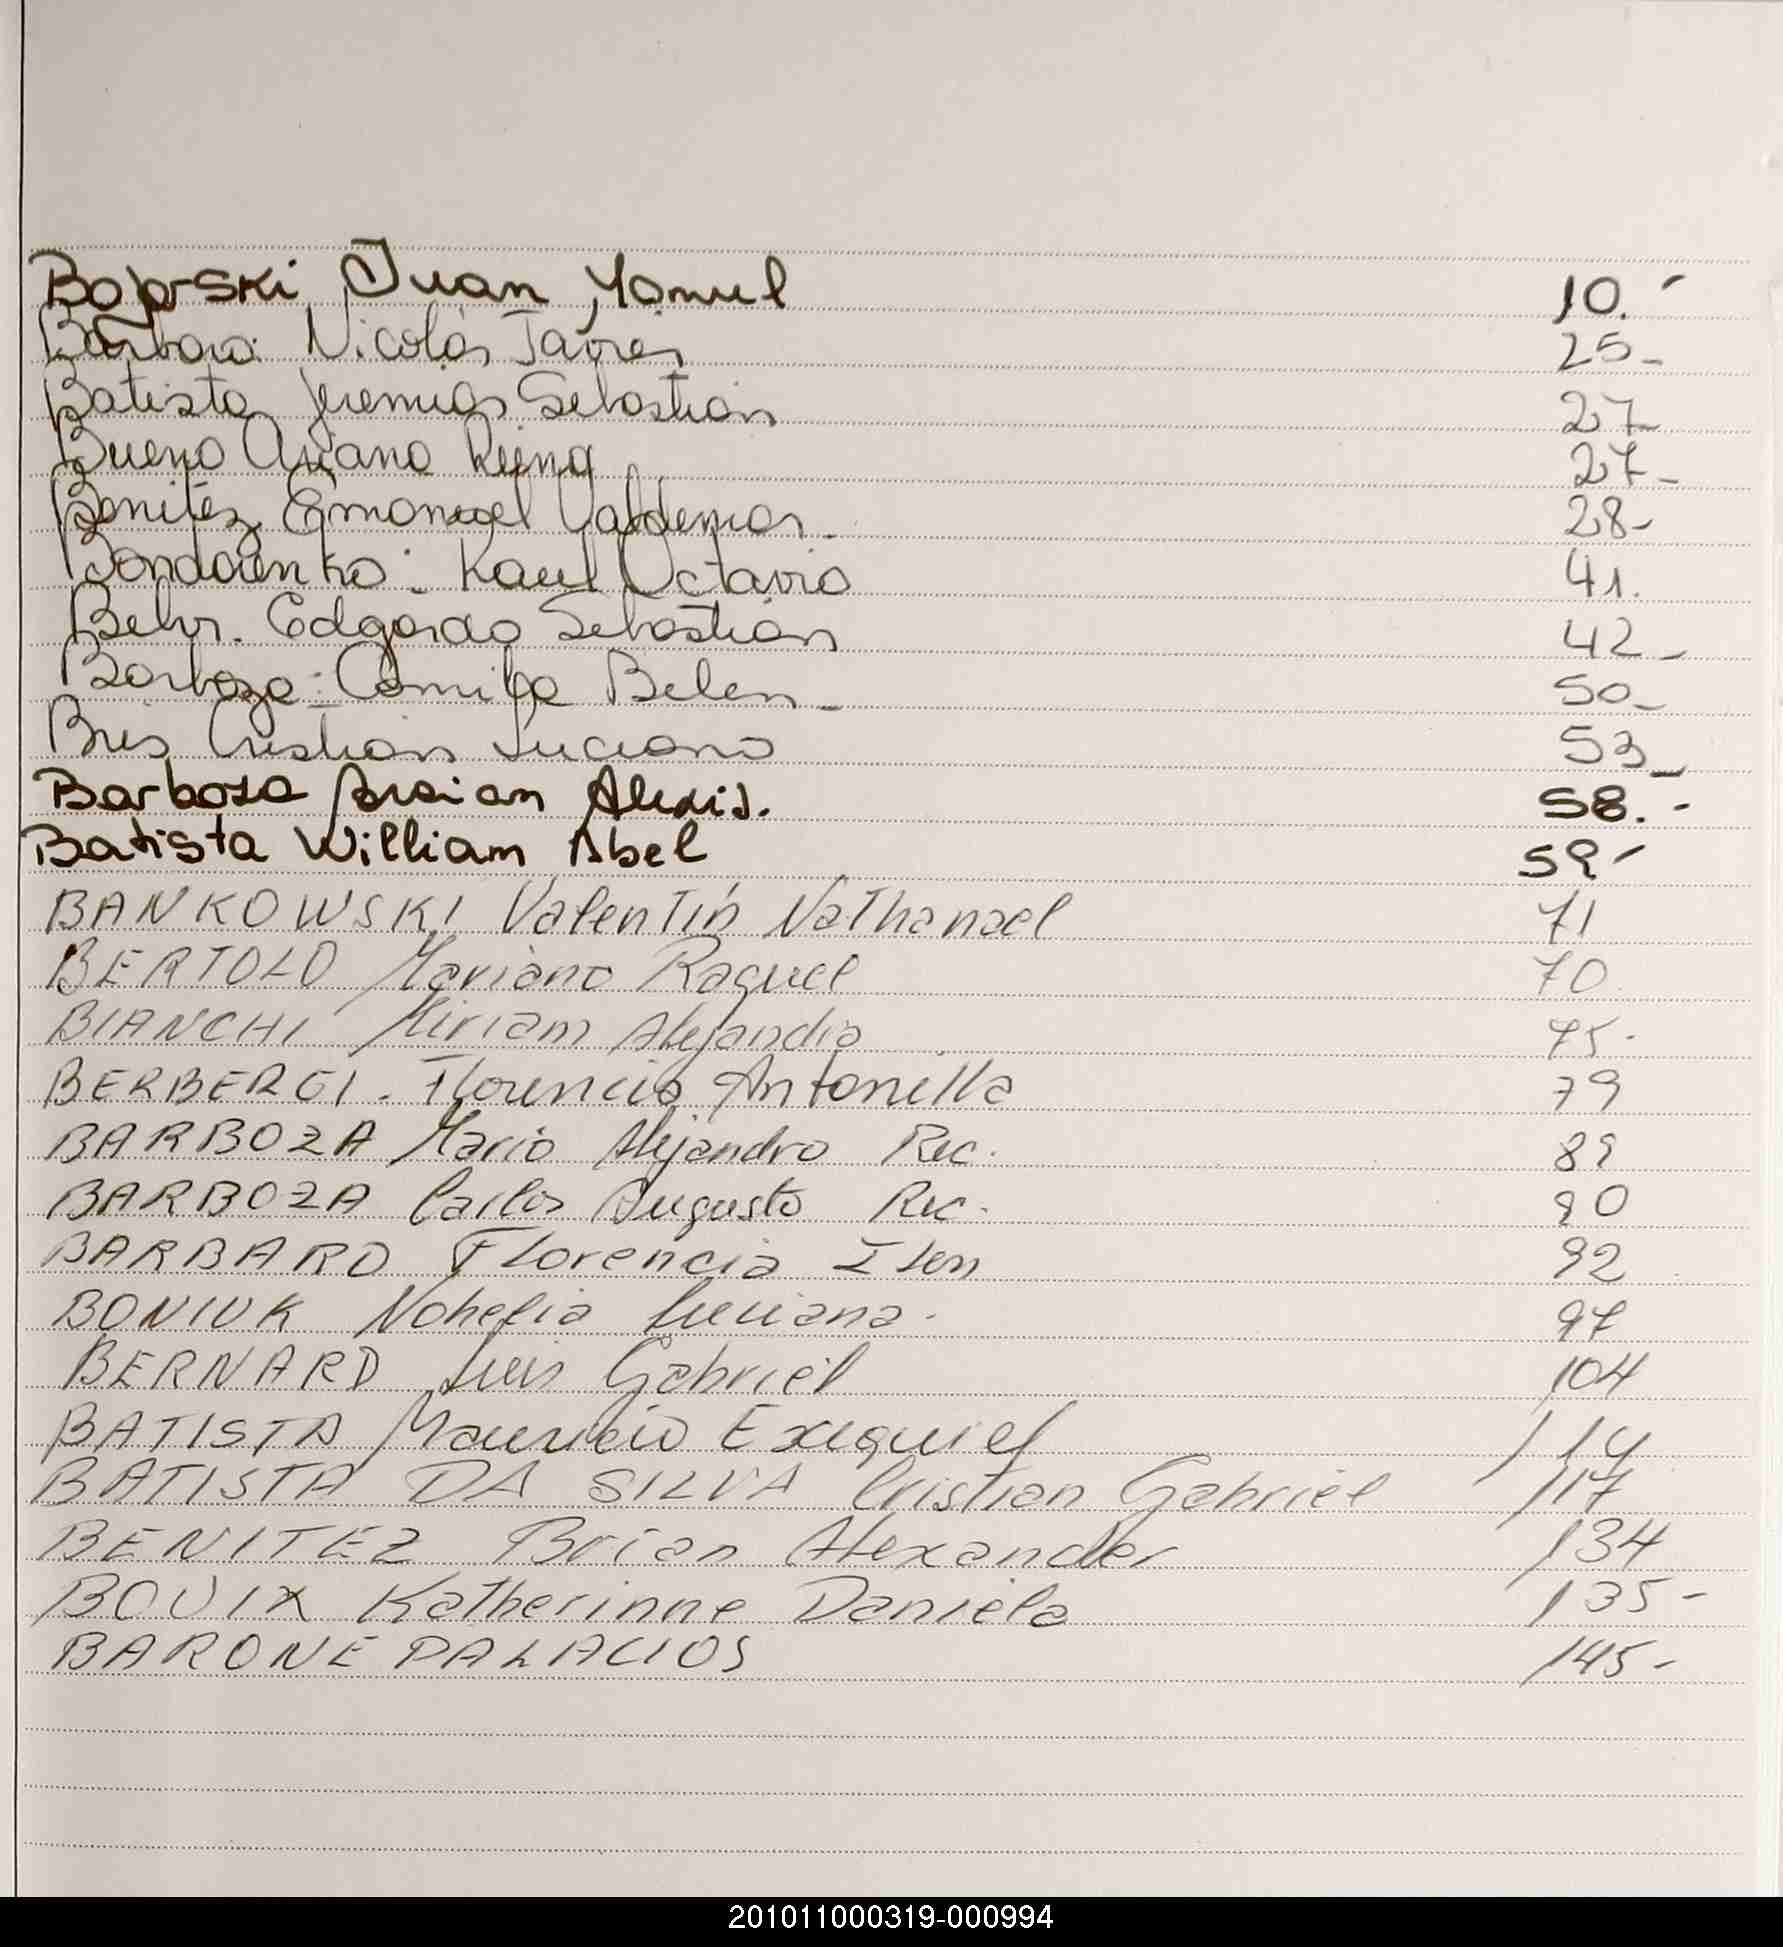 Bajorski, Juan Yamul 10.-
Barbaro Nicolás Javier 25-
Batista Jeremias Sebastian 27-
Bueno Ariana Reina 27-
Benitez Emanuel Valdemar. 28-
Bondarenko: Raul Octavio 41.
Behr. Edgardo Sebastian 42-
Barboza: Camila Belen- 50-
Bris Cristian Luciano 53-
Barboza Braian Alexis. 58.-
Batista William Abel 59-
BANKOWSKI Valentín Nathanael 71
BERTOLO Mariana Raquel 70
BIANCHI Miriam Alejandra 75-
BERBEROI. Florencia Antonella 79
BARBOZA Mario Alejandro Rec. 89
BARBOZA Carlos Augusto Rec. 90
BARBARO Florencia Ilen 92
BONIUK Nohelia Luciana. 97
BERNARD Luis Gabriel 104
BATISTA Mauricio Exequiel 114
BATISTA DA SILVA Cristian Gabriel 117
BENITEZ Brian Alexander 134
BOUIX Katherinne Daniela 135-
BARONE PALACIOS 145-
201011000319-000994